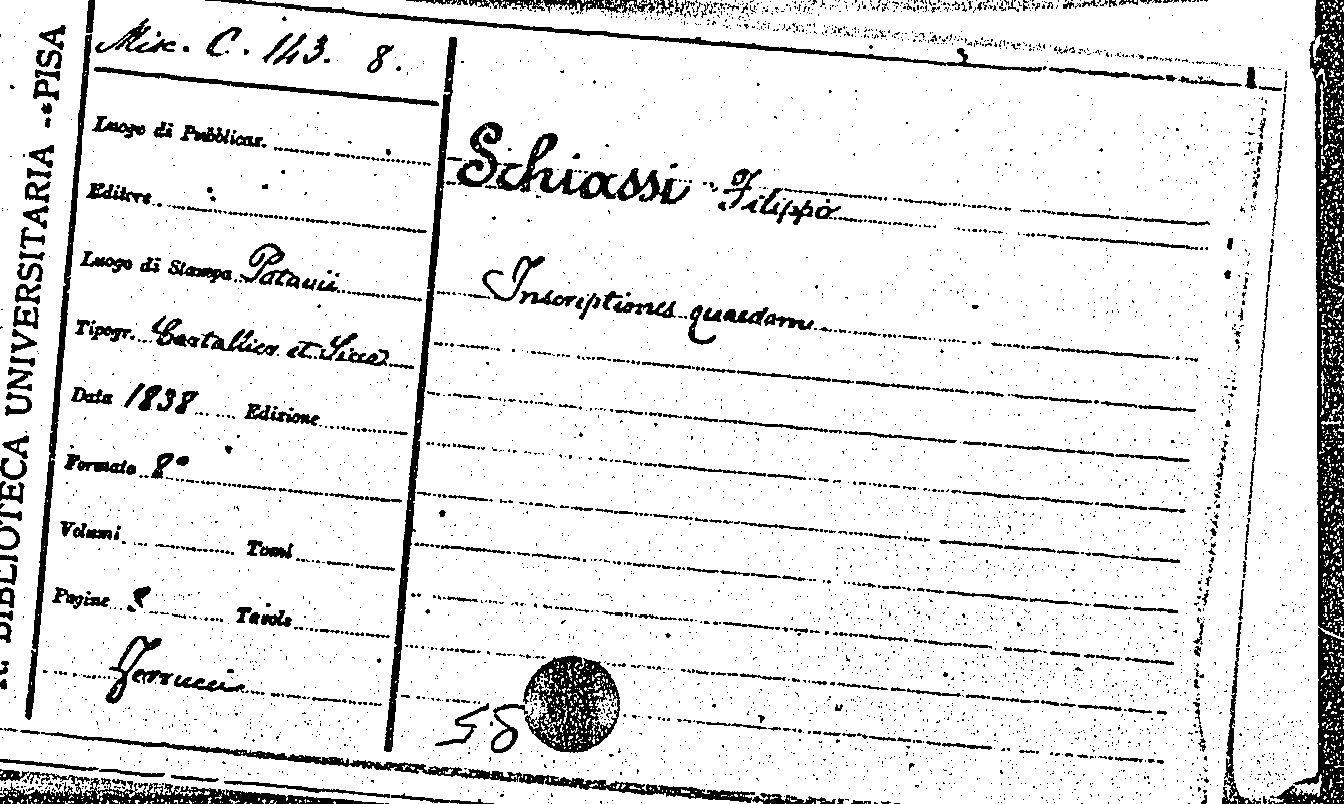 R. BIBLIOTECA UNIVERSITARIA - PISA
Misc. C. 143. 8.
Luogo di Pubblicaz.
Editore
Luogo di Stampa Patavii
Tipogr. Cartallier et Sicca
Data 1838 Edizione
Formato 8°
Volumi Tomi
Pagine 8 Tavole
Ferrucci
Schiassi Filippo
Inscriptiones quaedam
58